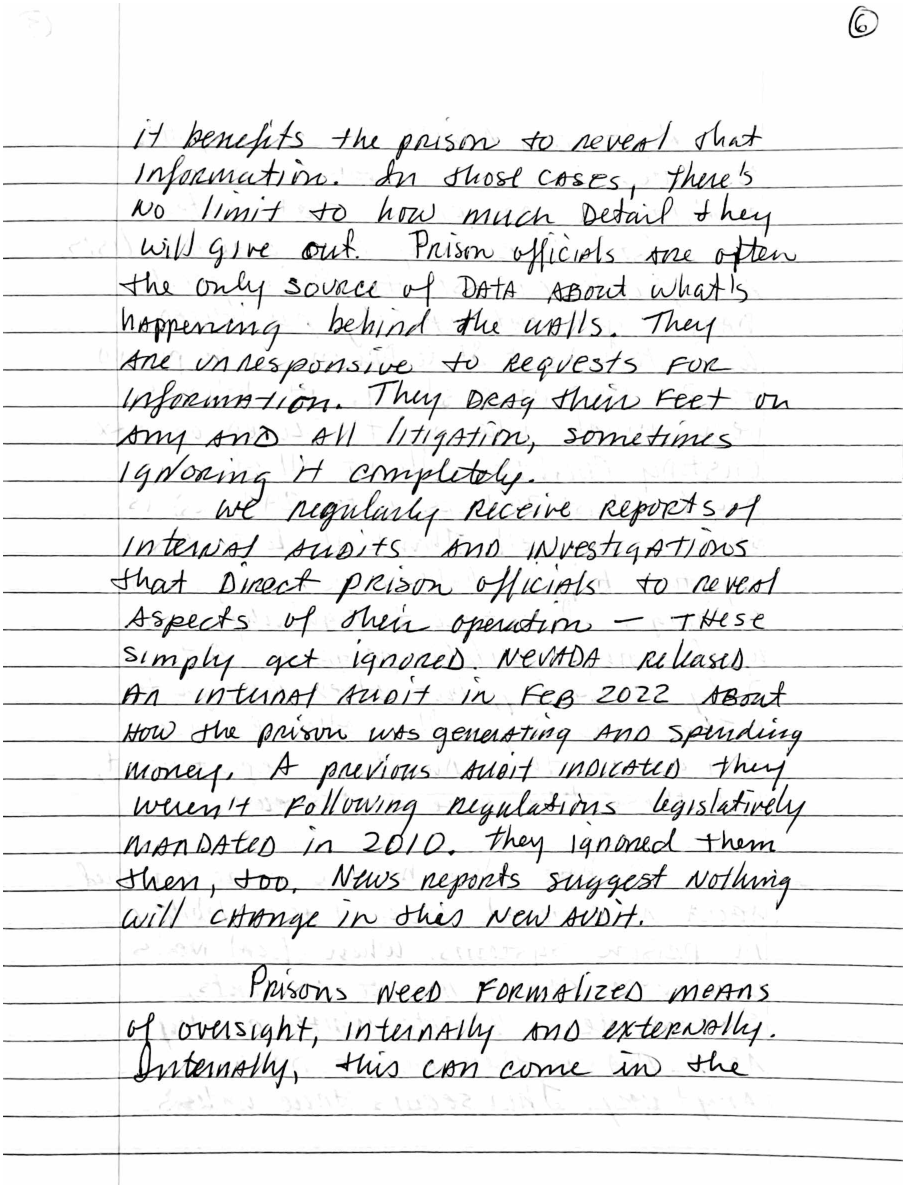 6
it benefits the prison to reveal that
information. In those cases, there's
no limit to how much detail they
will give out. Prison officials are often
the only source of data about what's
happening behind the walls. They
are unresponsive to requests for
information. They drag their feet on
any and all litigation, sometimes
ignoring it completely.
We regularly receive reports of
internal audits and investigations
that direct prison officials to reveal
aspects of their operation — these
simply get ignored. Nevada released
an internal audit in Feb 2022 about
how the prison was generating and spending
money. A previous audit indicated they
weren't following regulations legislatively
mandated in 2010. They ignored them
then, too. News reports suggest nothing
will change in this new audit.
Prisons need formalized means
of oversight, internally and externally.
Internally, this can come in the